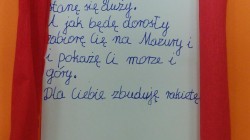 stanę się duży.
A jak będę dorosły
zabiorę Cię na Mazury i
i pokażę Ci morze i
góry.
Dla Ciebie zbuduję rakietę